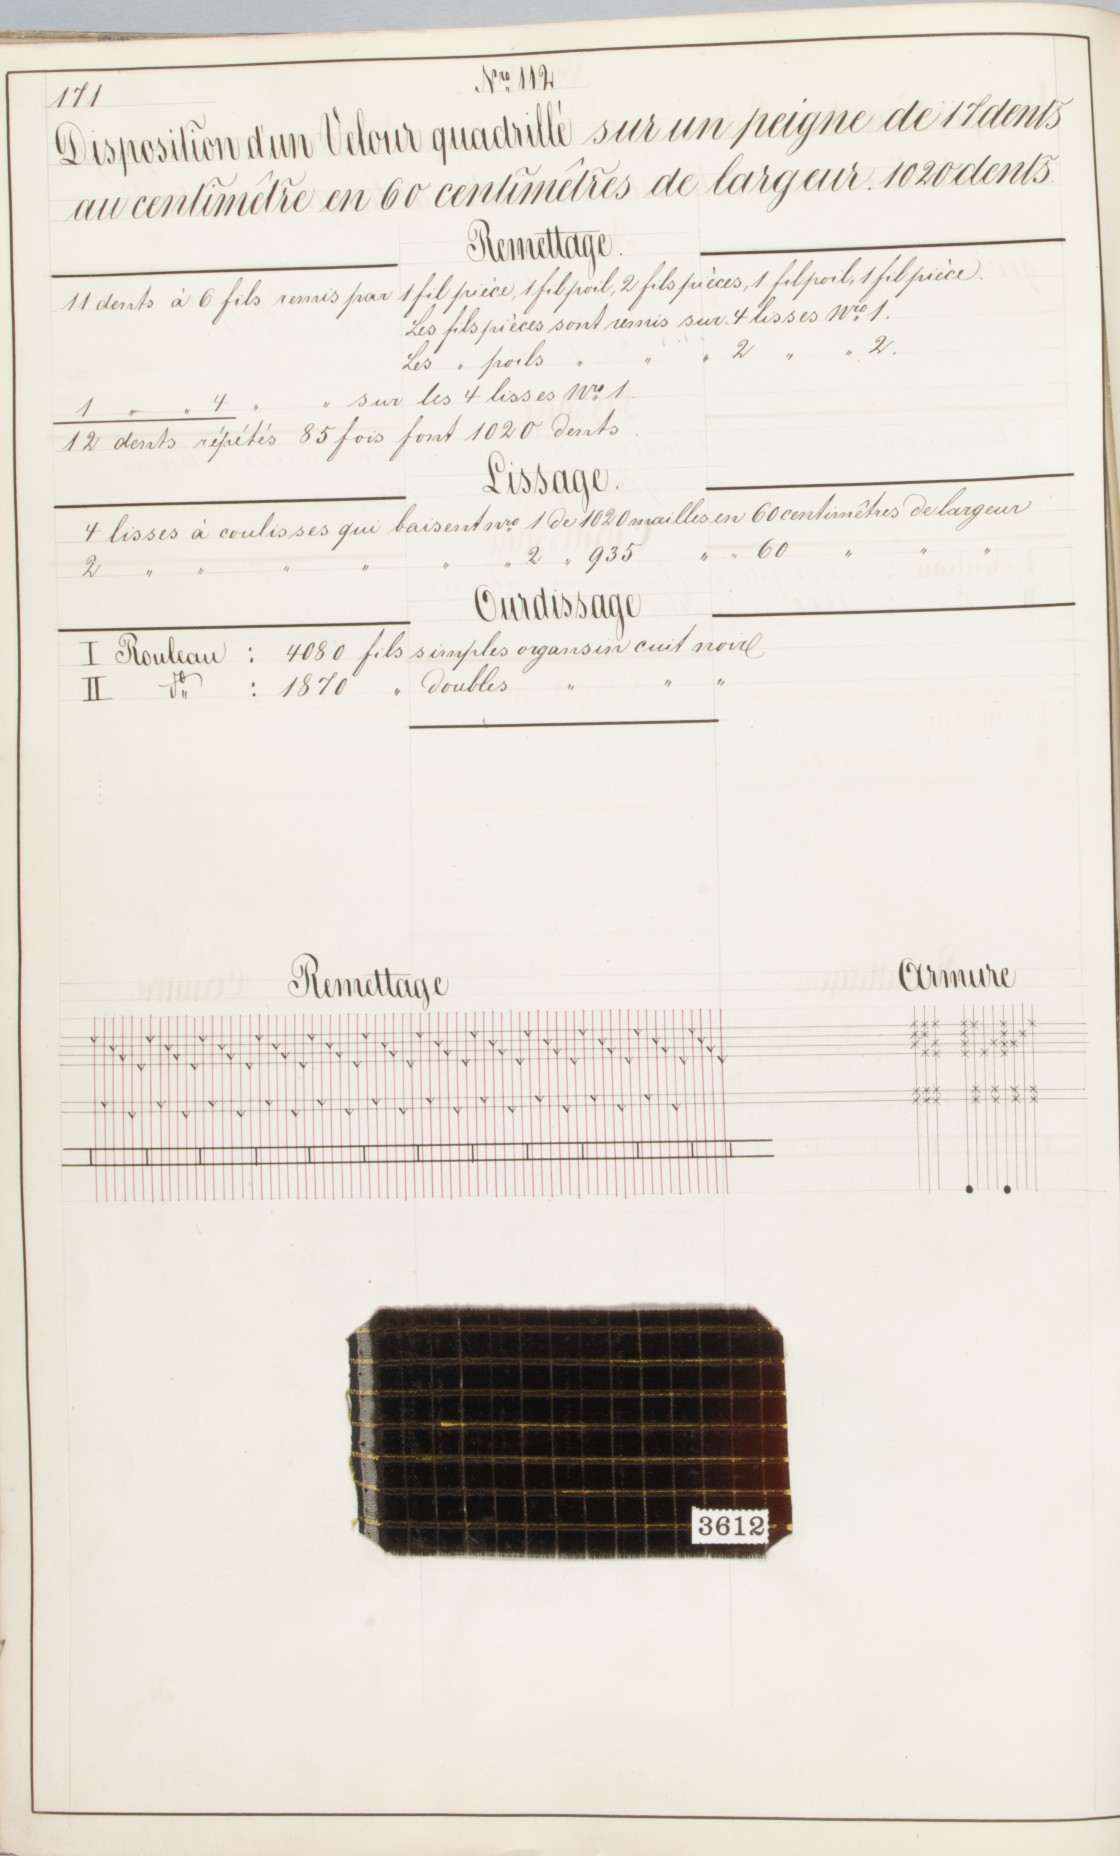 171
Nro. 112
Disposition d'un Velour quadrillé sur un peigne de 17 dents
au centimètre en 60 centimètres de largeur. 1020 dents.
Remettage.
11 dents à 6 fils remis par 1 fil pièce, 1 fil poil, 2 fils pièces, 1 fil poil, 1 fil pièce.
Les fils pièces sont remis sur 4 lisses Nro 1.
Les " poils " " " 2 " " 2.
1 " " 4 " " sur les 4 lisses Nro 1.
12 dents répétés 85 fois font 1020 dents.
Lissage.
4 lisses à coulisses qui baisent nro 1 de 1020 mailles en 60 centimètres de largeur
2 " " " " " " 2 " 935 " " 60 " " "
Ourdissage
I Rouleau : 4080 fils simples organsin cuit noir
II do : 1870 " doubles " " "
Remettage
Armure
3612